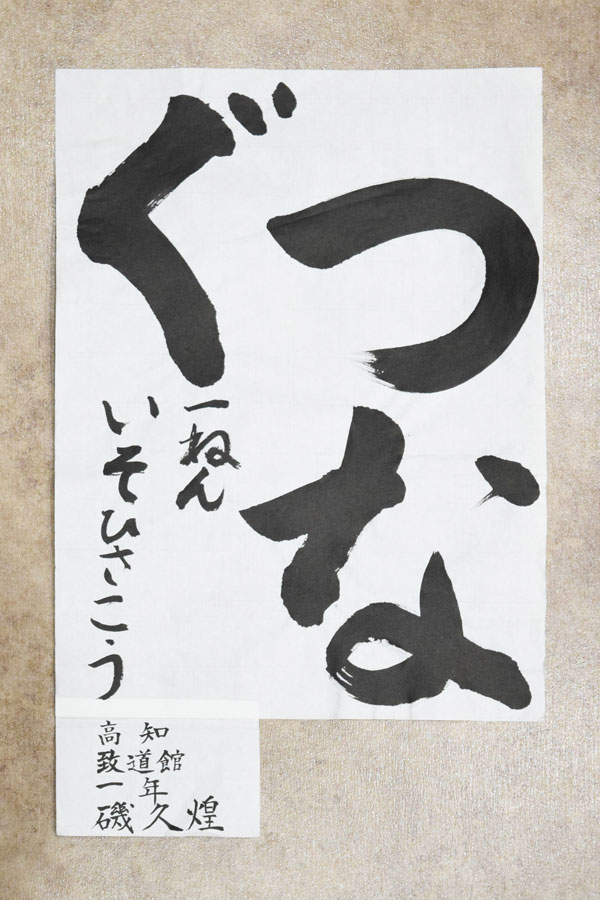 つな
ぐ
一ねん
いそひさこう
高知
致道館
一年
磯久煌